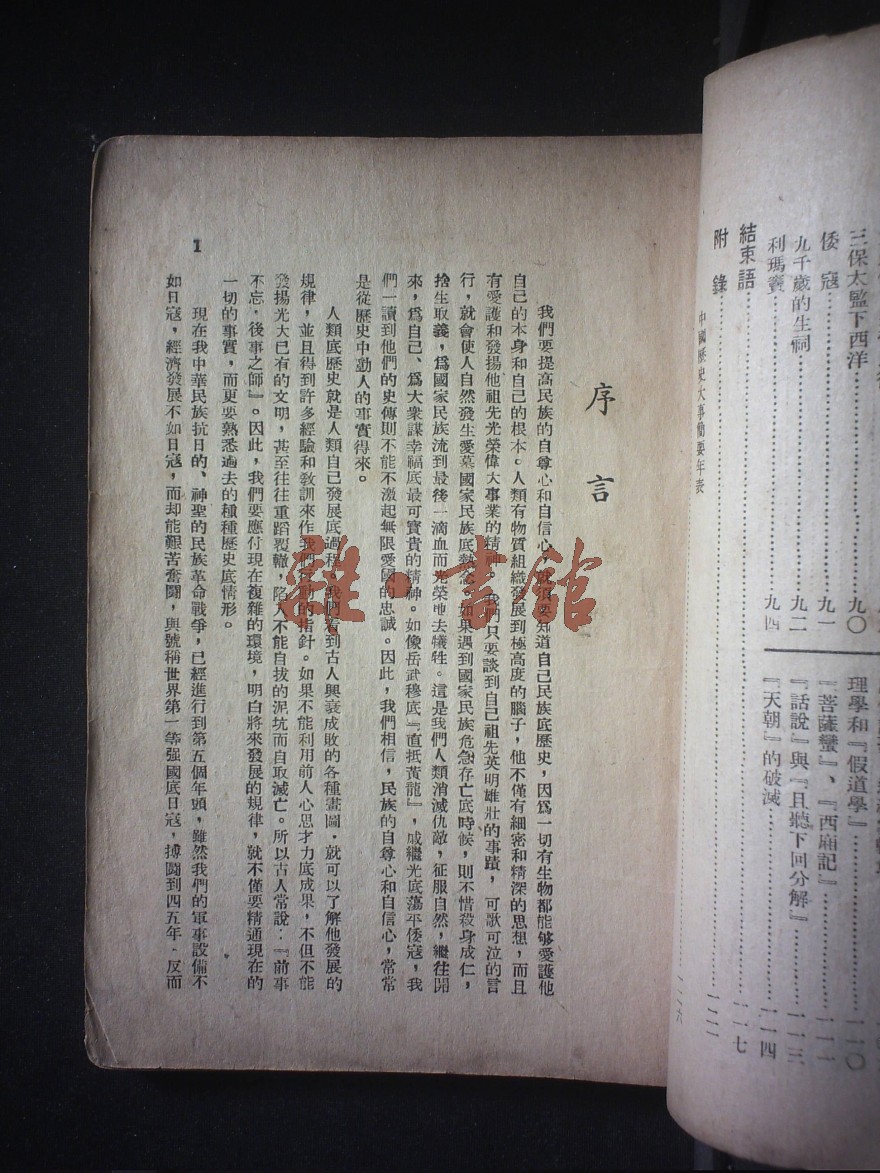 三保太監下西洋……九〇
倭寇……九一
九千歲的生祠……九二
利瑪竇……九四
理學和『假道學』……一一〇
『菩薩蠻』、『西廂記』……一一一
『話說』與『且聽下回分解』……一一三
『天朝』的破滅……一一四
結束語……一一七
附錄……一二一
中國歷史大事簡要年表
序言
我們要提高民族的自尊心和自信心，就須要知道自己民族底歷史，因爲一切有生物都能够愛護他
自己的本身和自己的根本。人類有物質組織發展到極高度的腦子，他不僅有細密和精深的思想，而且
有愛護和發揚他祖先光榮偉大事業的精神。我們只要談到自己祖先英明雄壯的事蹟，可歌可泣的言
行，就會使人自然發生愛慕國家民族底熱念。如果遇到國家民族危急存亡底時候，則不惜殺身成仁，
捨生取義，爲國家民族流到最後一滴血而光榮地去犧牲。這是我們人類消滅仇敵，征服自然，繼往開
來，爲自己、爲大衆謀幸福底最可寶貴的精神。如像岳武穆底『直抵黃龍』，戚繼光底蕩平倭寇，我
們一讀到他們的史傳則不能不激起無限愛國的忠誠。因此，我們相信，民族的自尊心和自信心，常常
是從歷史中動人的事實得來。
人類底歷史就是人類自己發展底過程。我們看到古人興衰成敗的各種畫圖，就可以了解他發展的
規律，並且得到許多經驗和敎訓來作我們行動的指針。如果不能利用前人心思才力底成果，不但不能
發揚光大已有的文明，甚至往往重蹈覆轍，陷入不能自拔的泥坑而自取滅亡。所以古人常說：『前事
不忘，後事之師』。因此，我們要應付現在複雜的環境，明白將來發展的規律，就不僅要精通現在的
一切的事實，而更要熟悉過去的種種歷史底情形。
現在我中華民族抗日的、神聖的民族革命戰爭，已經進行到第五個年頭，雖然我們的軍事設備不
如日寇，經濟發展不如日寇，而却能艱苦奮鬪，與號稱世界第一等强國底日寇，搏鬪到四五年，反而
1
雜·書館